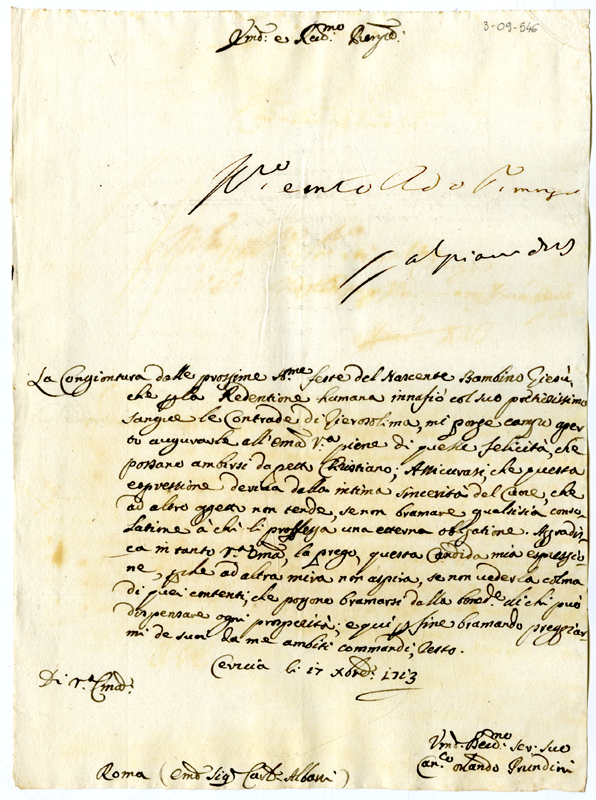 3-09-546
Vmo: e Revd:mo Prencipe:
La Congiontura delle prossime S:me feste del Nascente Bambino Giesù,
che p la Redentione humana innafiò col suo pretiosissimo
sangue le Contrade di Gierosolima, mi porge campo aper
to augurarle all'Emza V:a piene di quelle felicità, che
possano ambirsi da petto Christiano; Assicurasi, che questa
espressione deriva dalla intima sincerità del cuore, che
ad altro oggetto non tende, se non bramare qualsisia conso
latione à chi li professa una eterna obligatione. Aggradis
ca in tanto V:a Emza, la prego, questa Candida mia espressio
ne, pche ad altra mira non aspira, se non veder la colma
di quei contenti, che possono bramarsi dalla bontde di chi può
dispensare ogni prosperità; e qui p fine bramando preggiar
mi de suoi da me ambiti commandi, resto.
Cervia li 17 Xbre: 1713
Di V:a Emza:
Vmo: Devd:mo ser: suo
Can:co Orlando Prundini
Roma (Emo Sigr Card:e Albani)